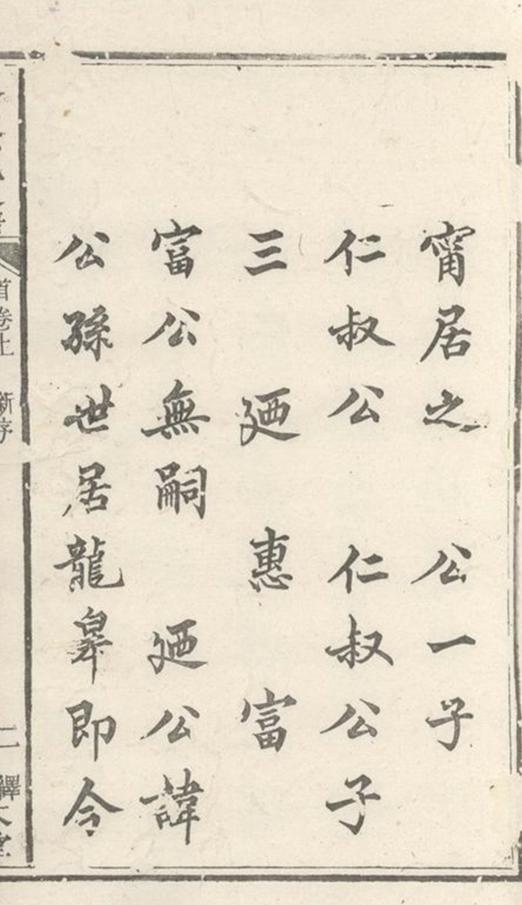 甯居之　公一子
仁叔公　仁叔公子
三　廼　惠　富
富公無嗣　廼公諱
公孫世居龍皐即今
首卷上　新序
二